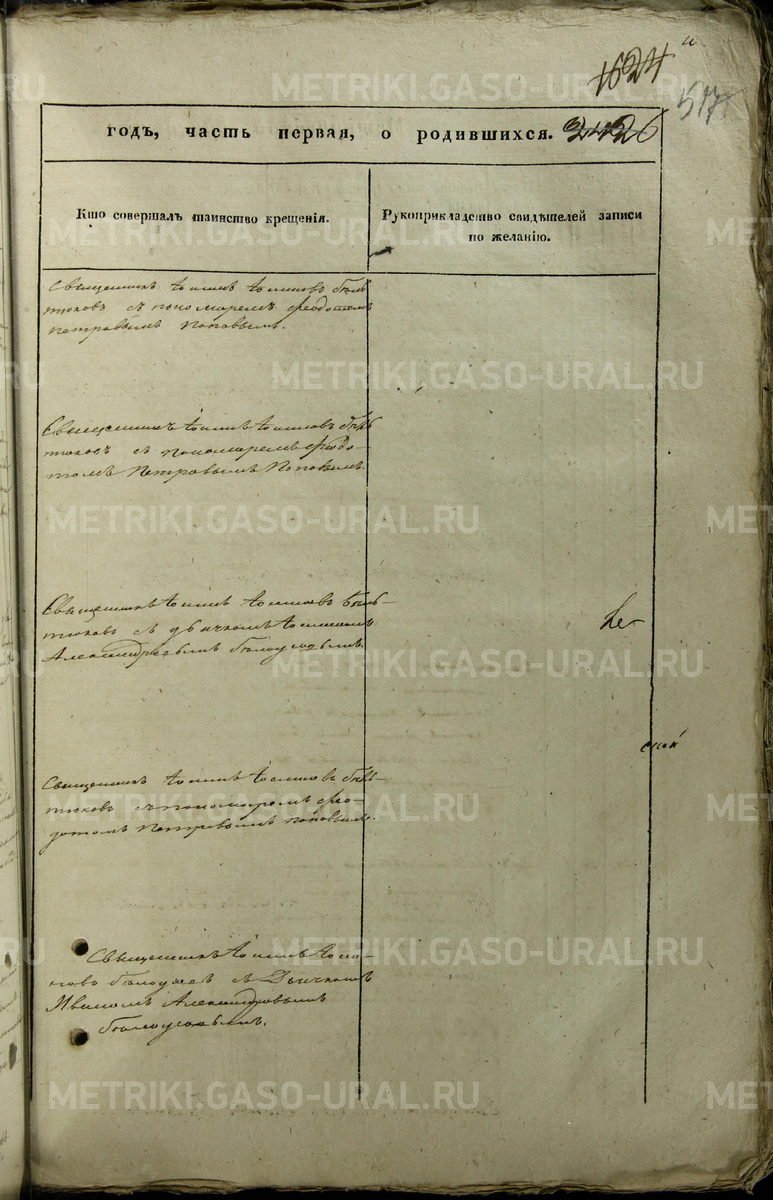 1624
517
годъ, часть первая, о родившихся. 2426
Кто совершалъ таинство крещенія.
Рукоприкладство свидѣтелей записи
по желанію.
Священникъ Іоаннъ Іоанновъ
с пономаремъ Феодотомъ
Петровымъ Поповымъ.
Священникъ Іоаннъ Іоанновъ
с пономаремъ Феодо-
томъ Петровымъ Поповымъ.
Священникъ Іоаннъ Іоанновъ
съ дьячкомъ Іоанномъ
Александровымъ Бѣлоусовымъ.
Священникъ Іоаннъ Іоанновъ
с пономаромъ Фео-
дотомъ Петровымъ Поповымъ.
Священникъ Іоаннъ Іоан-
новъ съ Дьячкомъ
Иваномъ Александровымъ
Бѣлоусовымъ.
METRIKI.GASO-URAL.RU